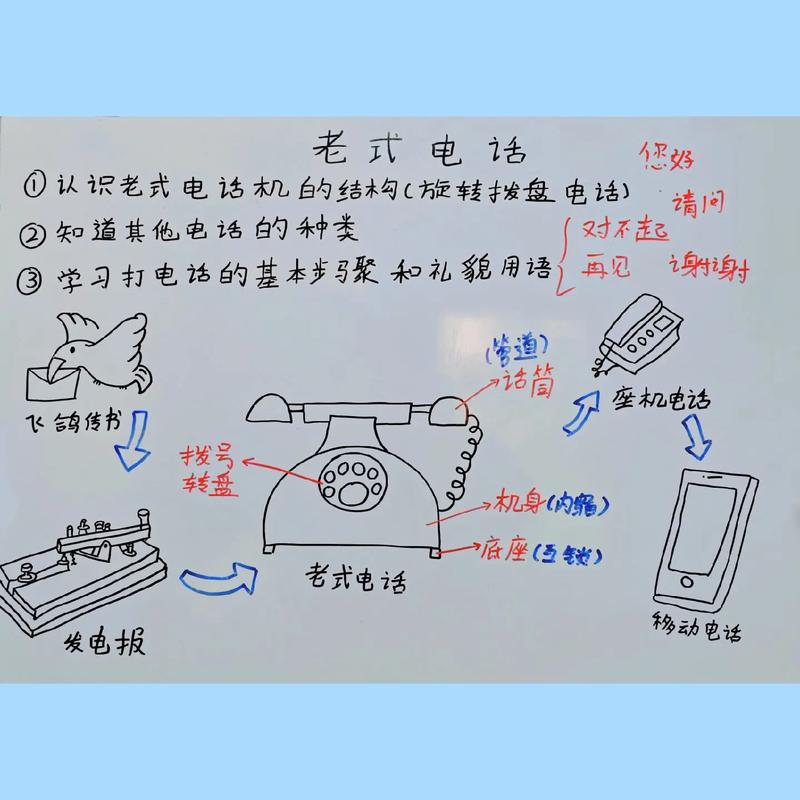 老式电话
您好
①认识老式电话机的结构(旋转拨盘电话)
请问
②知道其他电话的种类
对不起
③学习打电话的基本步骤和礼貌用语
再见 谢谢
(管道)
话筒
座机电话
飞鸽传书
拨号
转盘
机身(内缩)
底座(互锁)
老式电话
发电报
移动电话